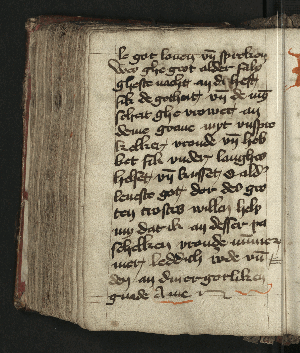 se got louen vn spreken
Wes ghe grot alder
gheste nacht an di heft
sik de gotheit vn de
scheit ghe vrowet an
deme graue myt vnspre
kelker vroude vnn heb
bet sik vnder langhes
helset vn kusset O alder
leueste got dor des gro
ten trostes willen help
my dat ik an desser pa
schelken vroude nummer
mer leddich
den an diner gotliken
gnade Ame